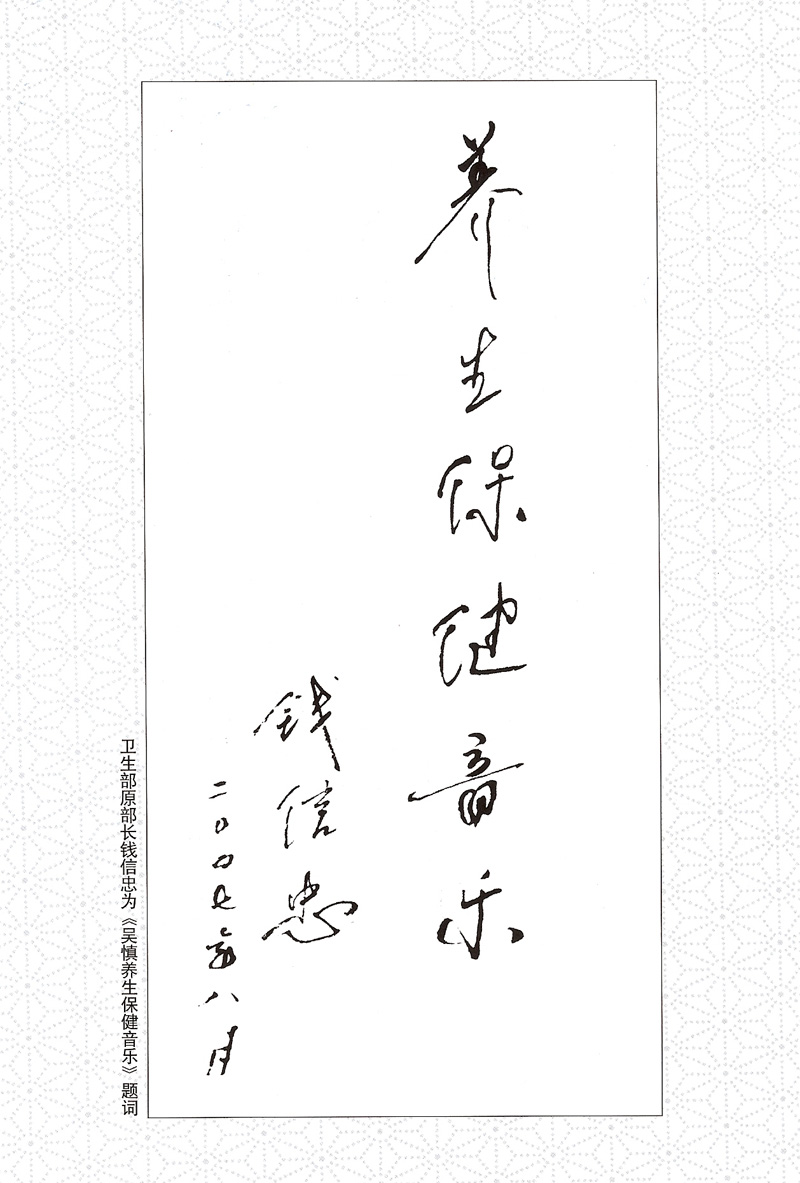 养生保健音乐
钱信忠
二〇〇七年八月
卫生部原部长钱信忠为《吴慎养生保健音乐》题词